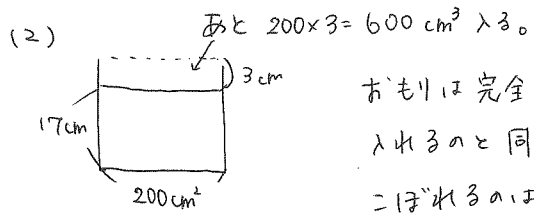 (2)
あと 200×3=600cm³ 入る。
3cm
17cm
200cm²
おもりは完全
入れるのと同
こぼれるのは